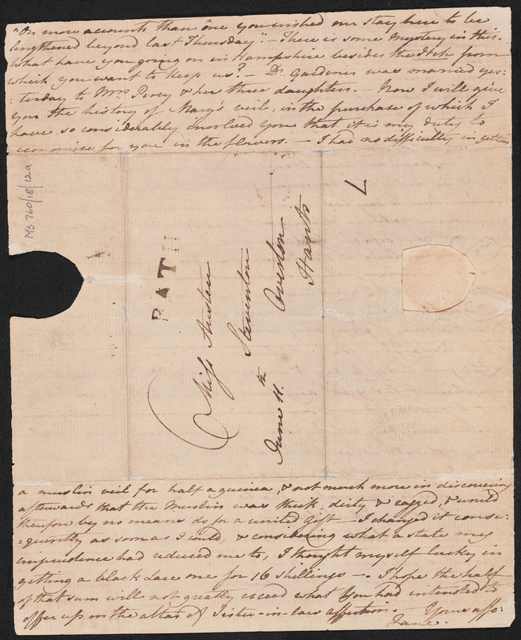 "On more accounts than one you wished our stay here to be
lengthened beyond last Thursday." – There is some Mystery in this.
What have you going on in Hampshire besides the Itch from
which you want to keep us? – Dr Gardiner was married yes-
:terday to Mrs Percy & her three daughters. – Now I will give
you the history of Mary's veil, in the purchase of which I
have so considerably involved you that it is my duty to
economise for you in the flowers. – I had no difficulty in getting
MS 760/18/12a
BATH
Miss Austen
Steventon
Overton
Hants
June 11.th
7
a muslin veil for half a guinea, & not much more in discovering
afterwards that the Muslin was thick, dirty & ragged, & would
therefore by no means do for a united Gift – I changed it conse-
:quently as soon as I could, & considering what a state my
imprudence had reduced me to, I thought myself lucky in
getting a black Lace one for 16 shillings –. I hope the half
of that sum will not greatly exceed what You had intended to
offer up on the altar of Sister-in-law affection. – Yours affec:
Jane.